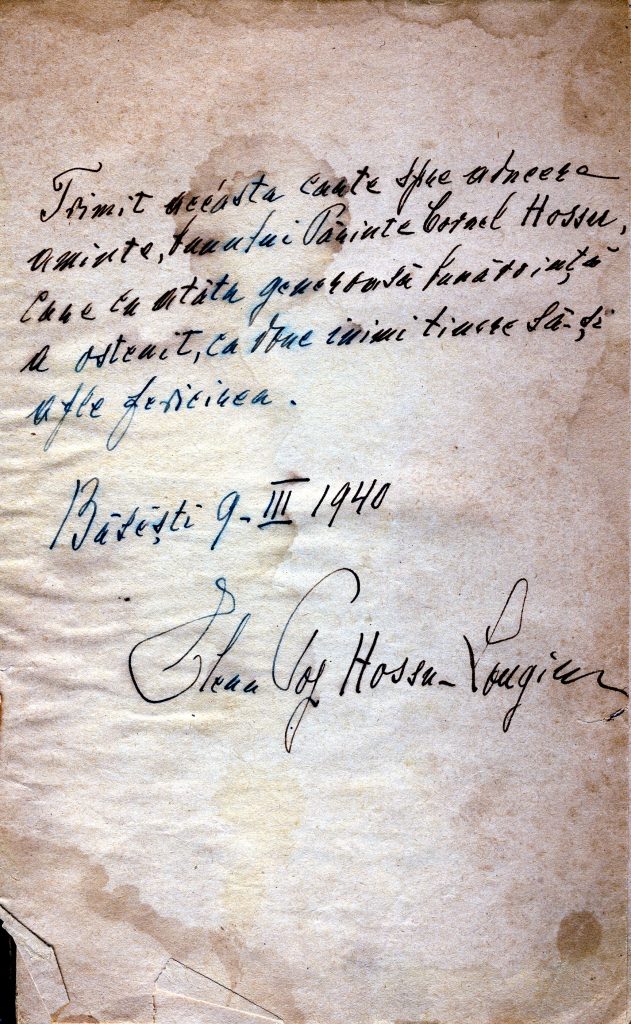 Trimit această carte spre aducere
aminte, bunului Părinte Cornel Hossu,
care cu atâta generoasă bunăvoință
a ostenit, ca doue inimi tinere să-și
afle fericirea.
Băsești 9-III 1940
Elena Pop Hossu-Longin